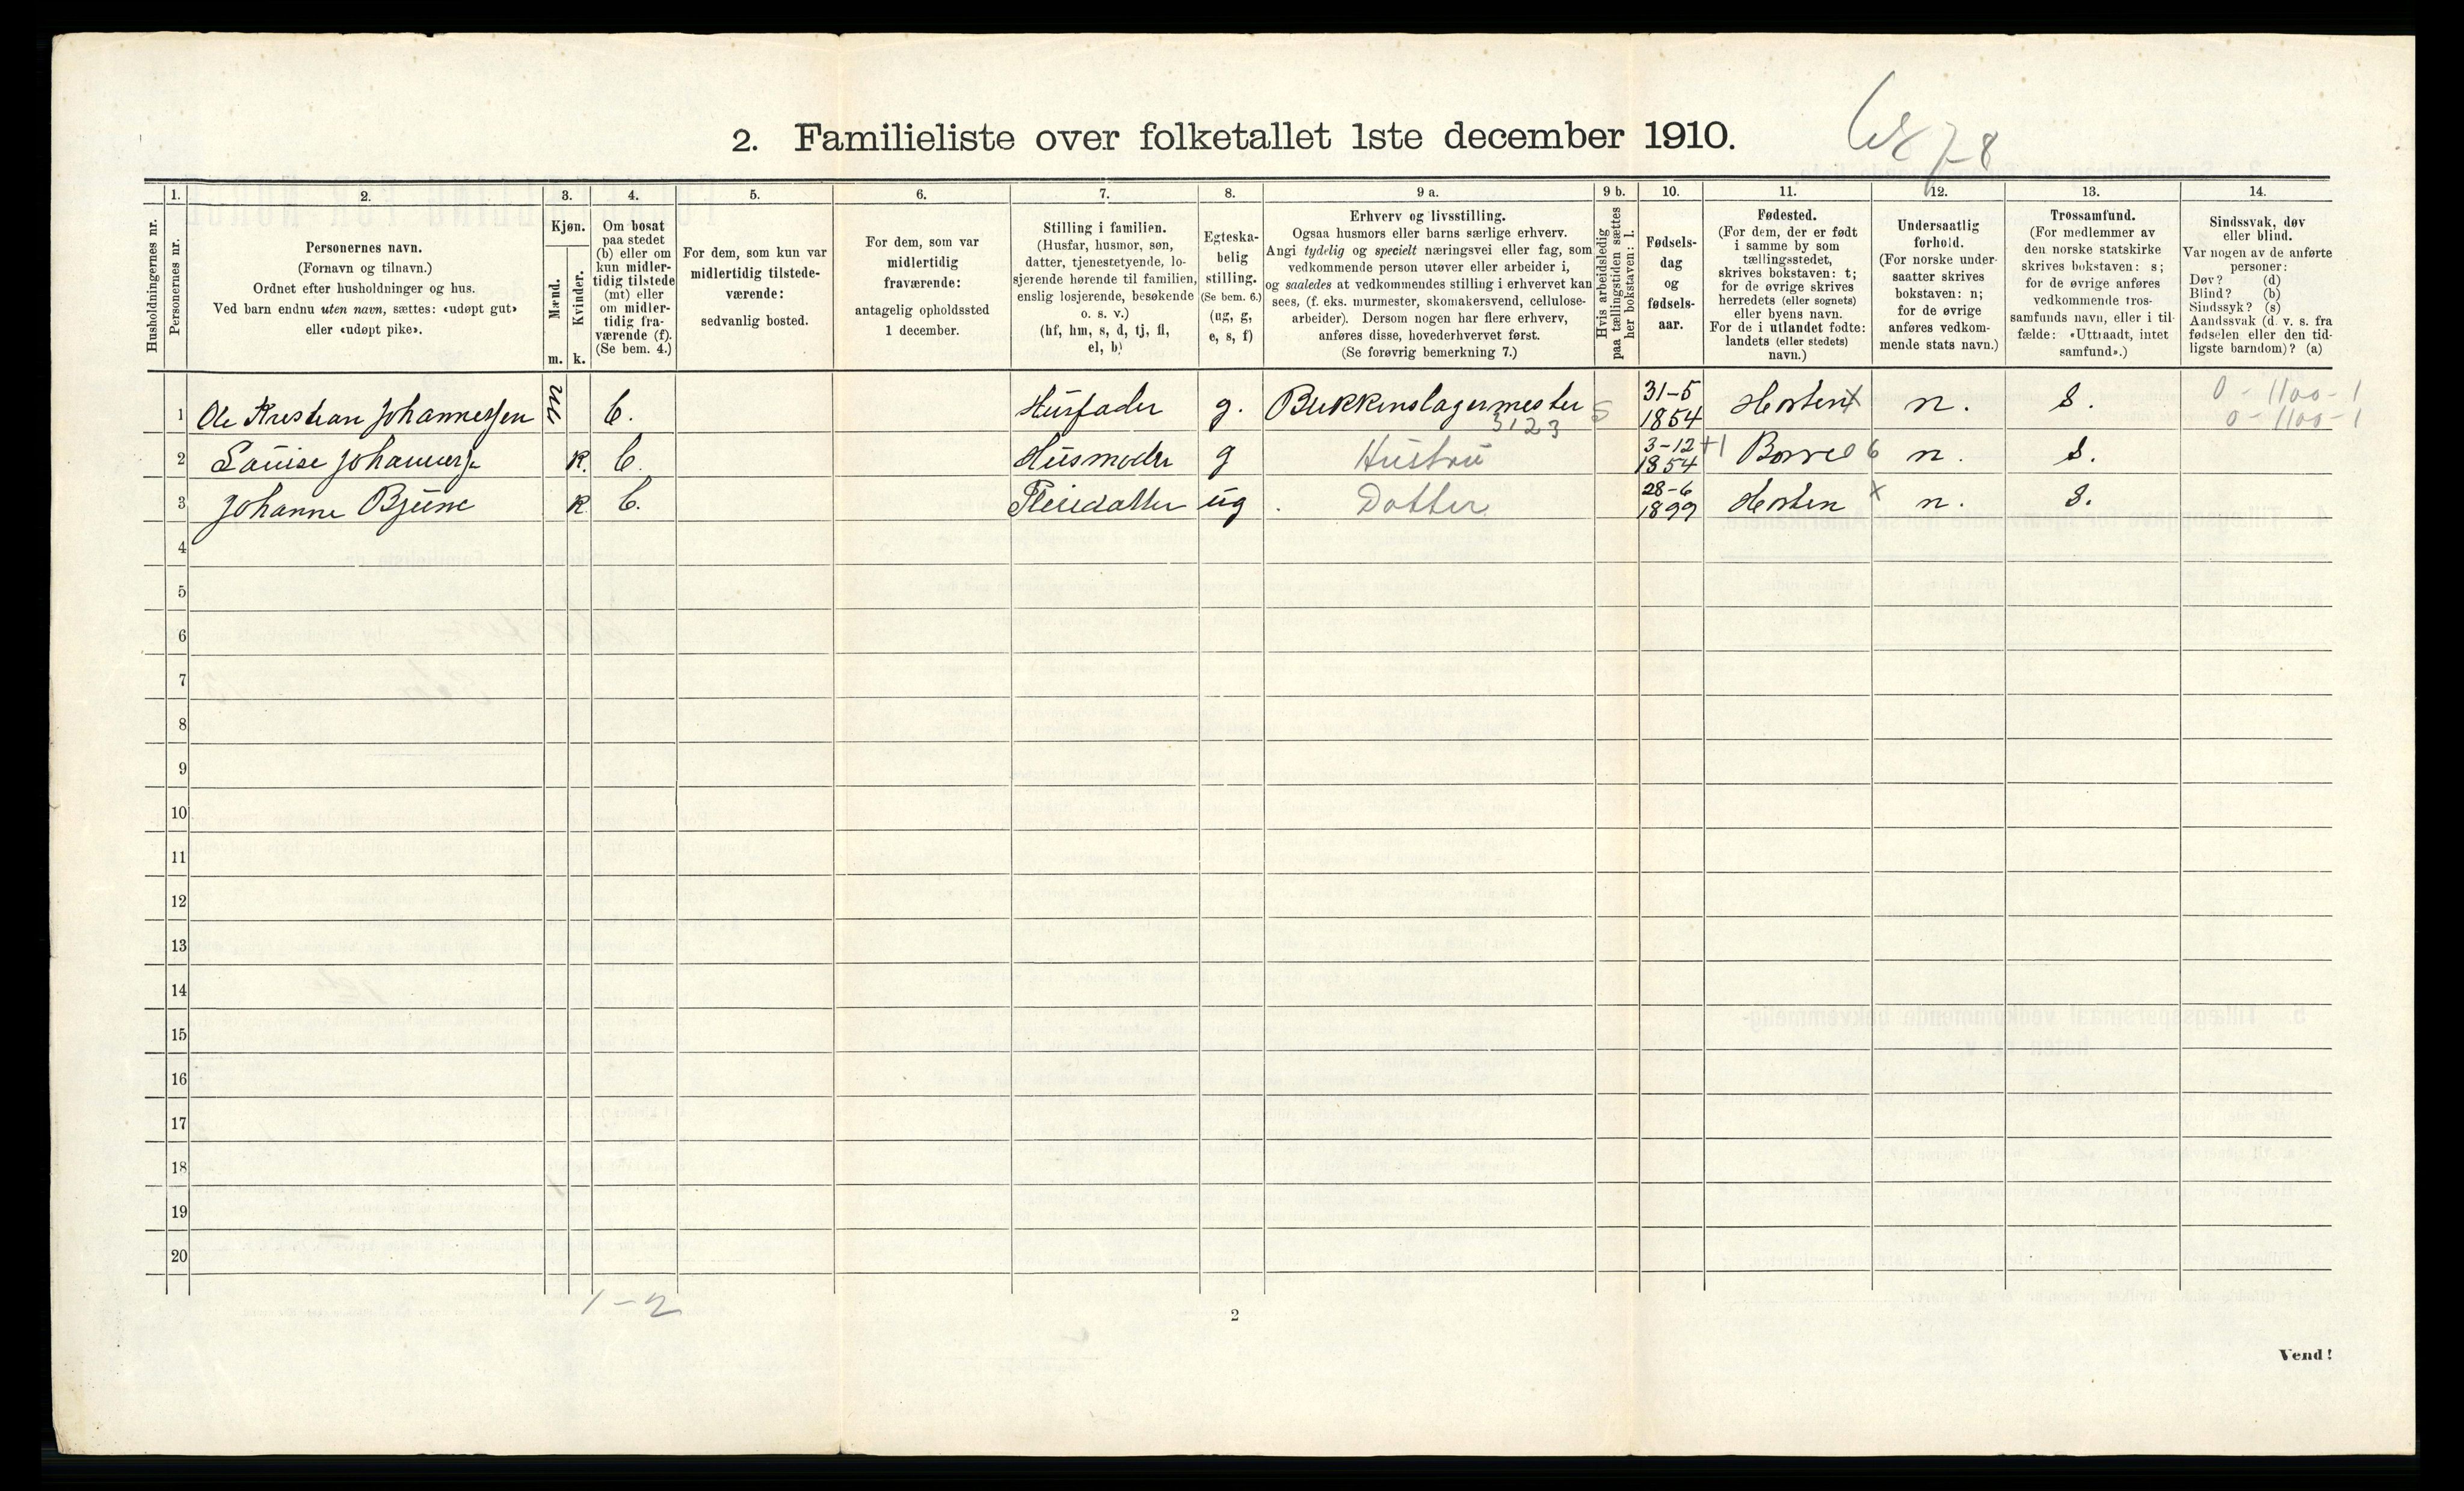 2. Familieliste over folketallet 1ste december 1910.
7-8
1. 2. 3. 4. 5. 6. 7. 8. 9 a. 9 b. 10. 11. 12. 13. 14.
Husholdningernes nr.
Personernes nr.
Personernes navn.
(Fornavn og tilnavn.)
Ordnet efter husholdninger og hus.
Ved barn endnu uten navn, sættes: «udøpt gut»
eller «udøpt pike».
Kjøn.
Mænd.
Kvinder.
m. k.
Om bosat
paa stedet
(b) eller om
kun midler-
tidig tilstede
(mt) eller
om midler-
tidig fra-
værende (f).
(Se bem. 4.)
For dem, som kun var
midlertidig tilstede-
værende:
sedvanlig bosted.
For dem, som var
midlertidig
fraværende:
antagelig opholdssted
1 december.
Stilling i familien.
(Husfar, husmor, søn,
datter, tjenestetyende, lo-
sjerende hørende til familien,
enslig losjerende, besøkende
o. s. v.)
(hf, hm, s, d, tj, fl,
el, b)
Egteska-
belig
stilling.
(Se bem. 6.)
(ug, g,
e, s, f)
Erhverv og livsstilling.
Ogsaa husmors eller barns særlige erhverv.
Angi tydelig og specielt næringsvei eller fag, som
vedkommende person utøver eller arbeider i,
og saaledes at vedkommendes stilling i erhvervet kan
sees, (f. eks. murmester, skomakersvend, cellulose-
arbeider). Dersom nogen har flere erhverv,
anføres disse, hovederhvervet først.
(Se forøvrig bemerkning 7.)
Hvis arbeidsledig
paa tællingstiden sættes
her bokstaven: l.
Fødsels-
dag
og
fødsels-
aar.
Fødested.
(For dem, der er født
i samme by som
tællingsstedet,
skrives bokstaven: t;
for de øvrige skrives
herredets (eller sognets)
eller byens navn.
For de i utlandet fødte:
landets (eller stedets)
navn.)
Undersaatlig
forhold.
(For norske under-
saatter skrives
bokstaven: n;
for de øvrige
anføres vedkom-
mende stats navn.)
Trossamfund.
(For medlemmer av
den norske statskirke
skrives bokstaven: s;
for de øvrige anføres
vedkommende tros-
samfunds navn, eller i til-
fælde: «Uttraadt, intet
samfund».)
Sindssvak, døv
eller blind.
Var nogen av de anførte
personer:
Døv? (d)
Blind? (b)
Sindssyk? (s)
Aandssvak (d. v. s. fra
fødselen eller den tid-
ligste barndom)? (a)
1 Ole Kristian Johannessen m b. Husfader g. Blikkenslagermester 5 3123 31-5 1854 Horten x n. S. 0-1100-1 0-1100-1
2 Louise Johanness k. b. Husmoder g Hustru 3-12 1854 +1 Borre 06 n. S.
3 Johanne Bjune k b. Pleiedatter ug . Datter 28-6 1899 Horten x n. S.
4
5
6
7
8
9
10
11
12
13
14
15
16
17
18
19
20
1-2
2
Vend!